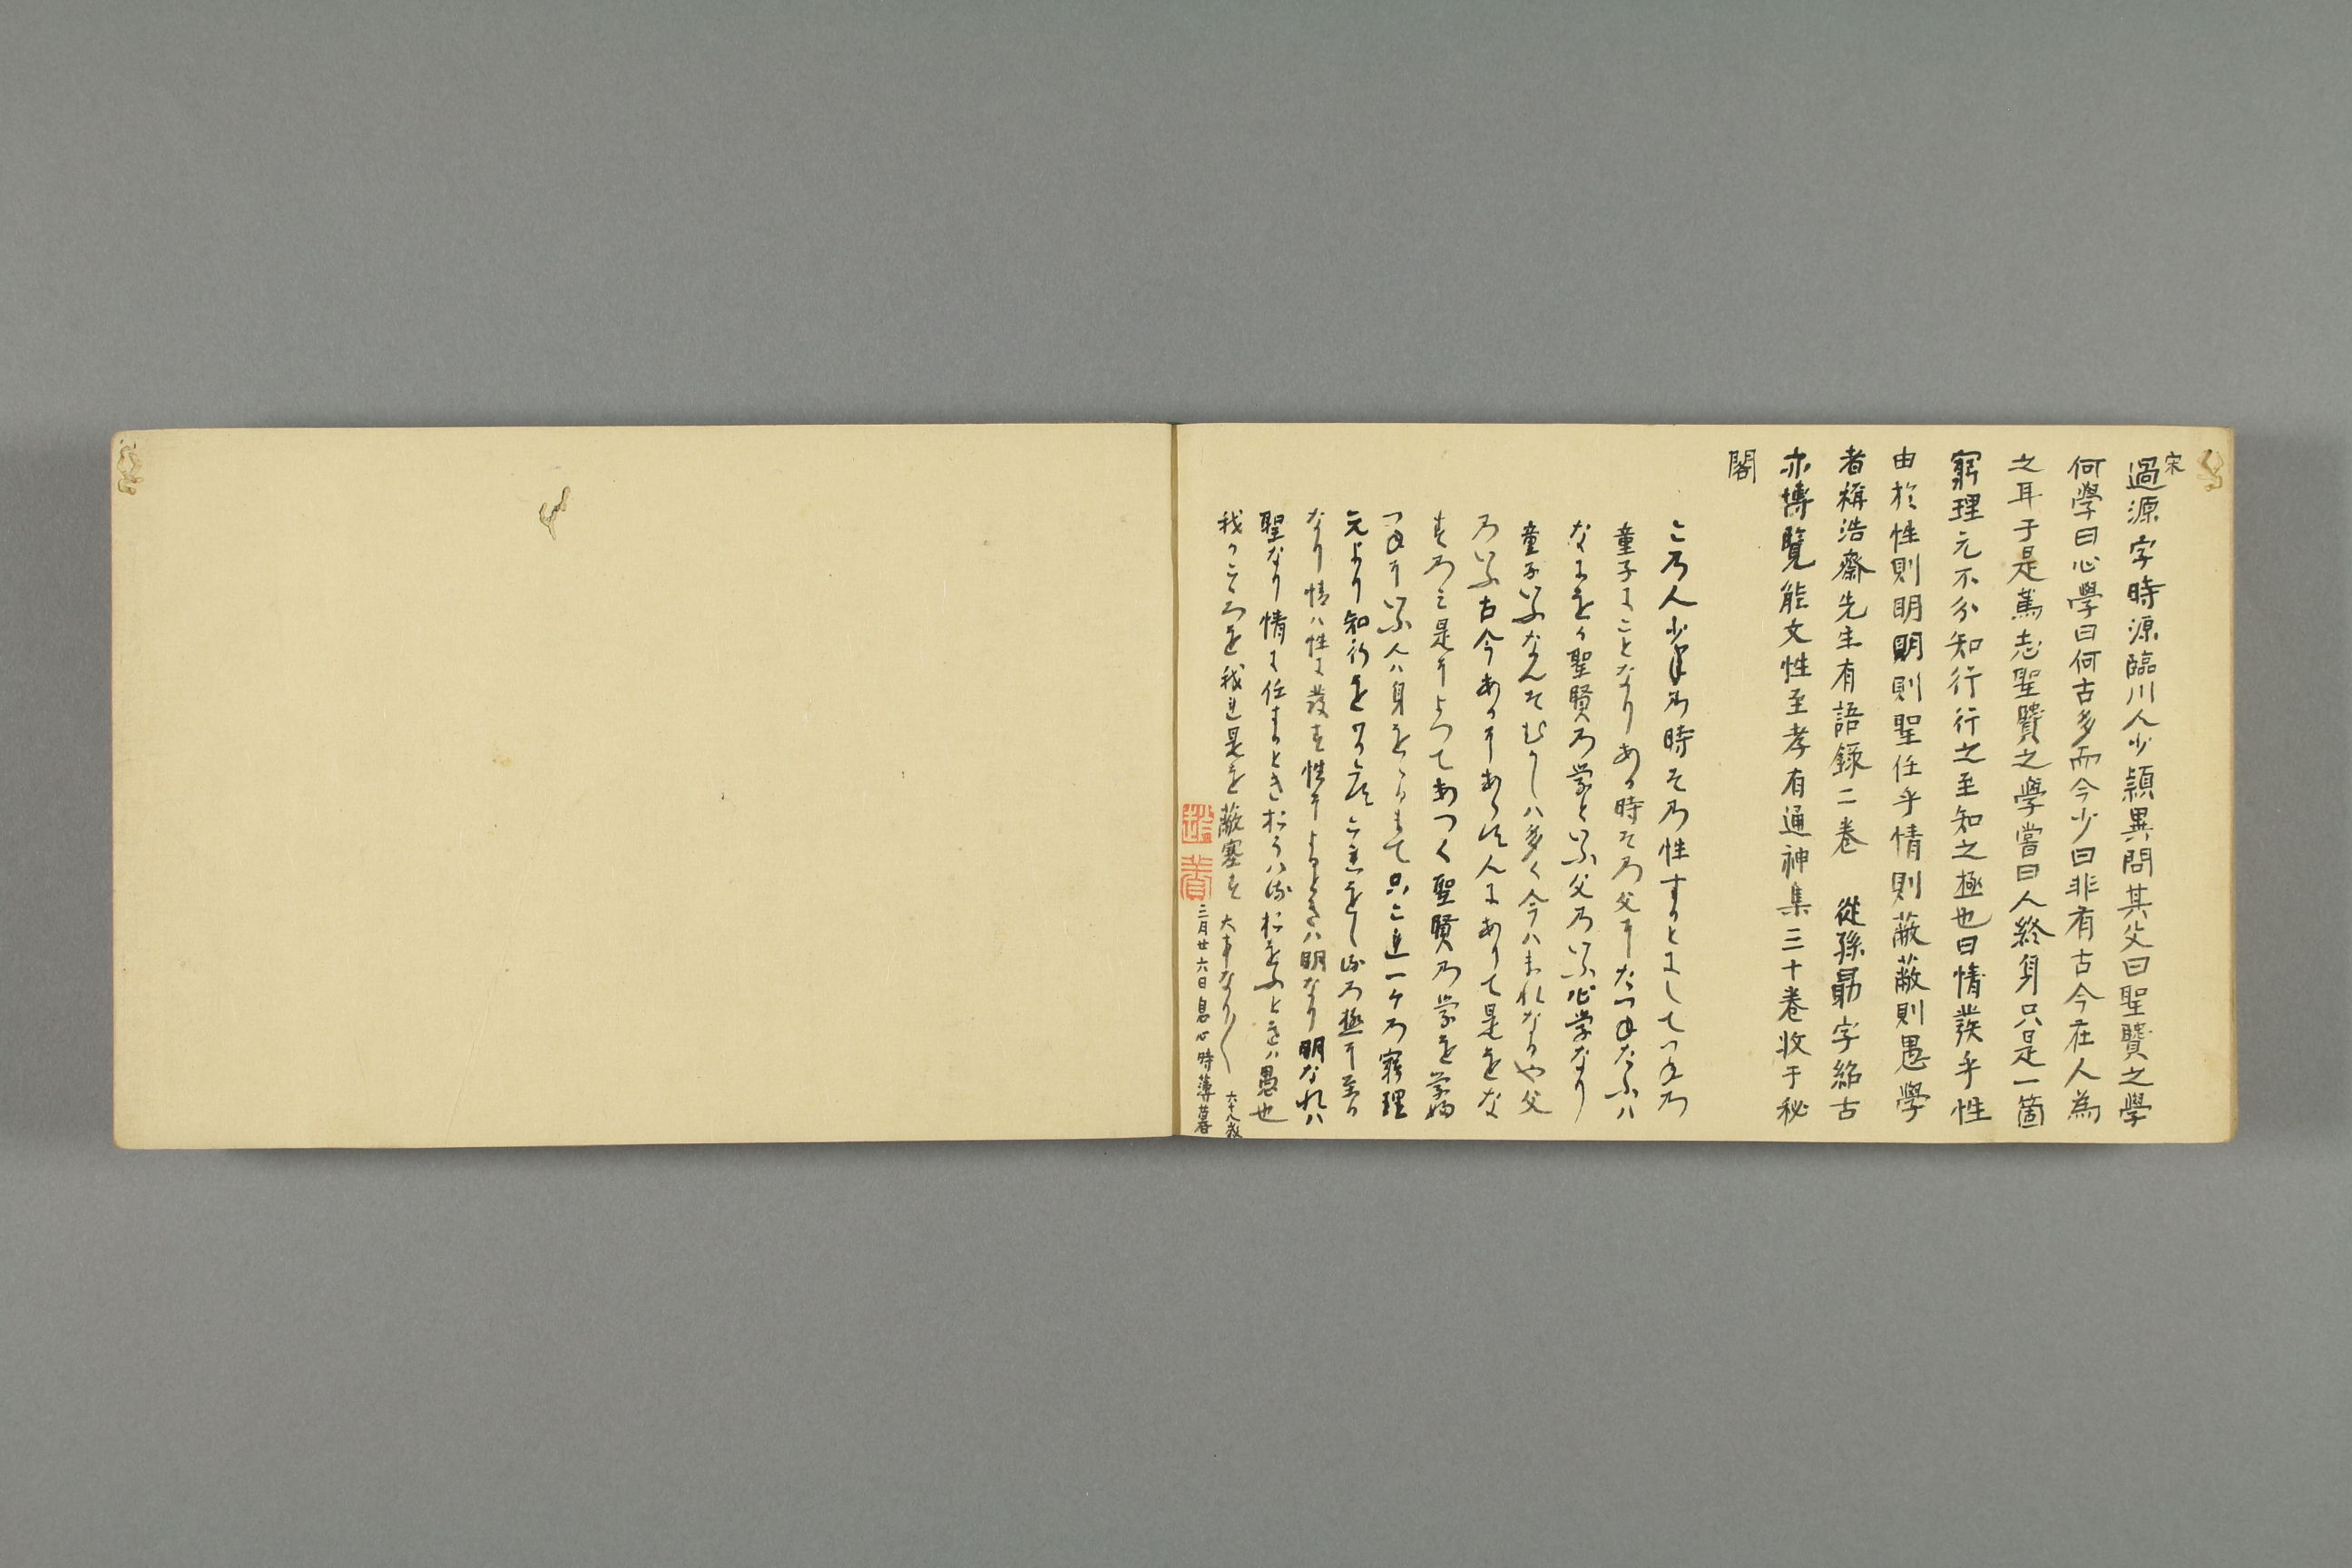 宋
過源字時源臨川人少穎異問其父曰聖賢之學
何學曰心學曰何古多而今少曰非有古今在人為
之耳于是篤志聖賢之學嘗曰人終身只是一箇
窮理元不分知行行之至知之極也曰情發乎性
由於性則明明則聖任乎情則蔽蔽則愚學
者稱浩齋先生有語錄二卷 從孫勗字紹古
亦博覽能文性至孝有通神集三十卷收于秘
閣
この人少年の時その性すつとにしてつねの
童子にことなりある時その父にたつねたふハ
なにをか聖賢の学といふ父のいふ心学なり
童子いふなんそむかしハ多く今ハまれなるや父
のいふ古今あるにあらす人にありて是をな
すのミ是によつてあつく聖賢の学を学ふ
つねにいふ人ハ身をおはるまて只これ一ケの窮理
元より知行をわかたすこれをし知の極に至る
なり情ハ性に發す性によるときハ明なり明なれハ
聖なり情に任するときおほハるおほふときハ愚也
我こころを我と是を蔽塞す 大事なり〱
三月廿六日息心時薄暮